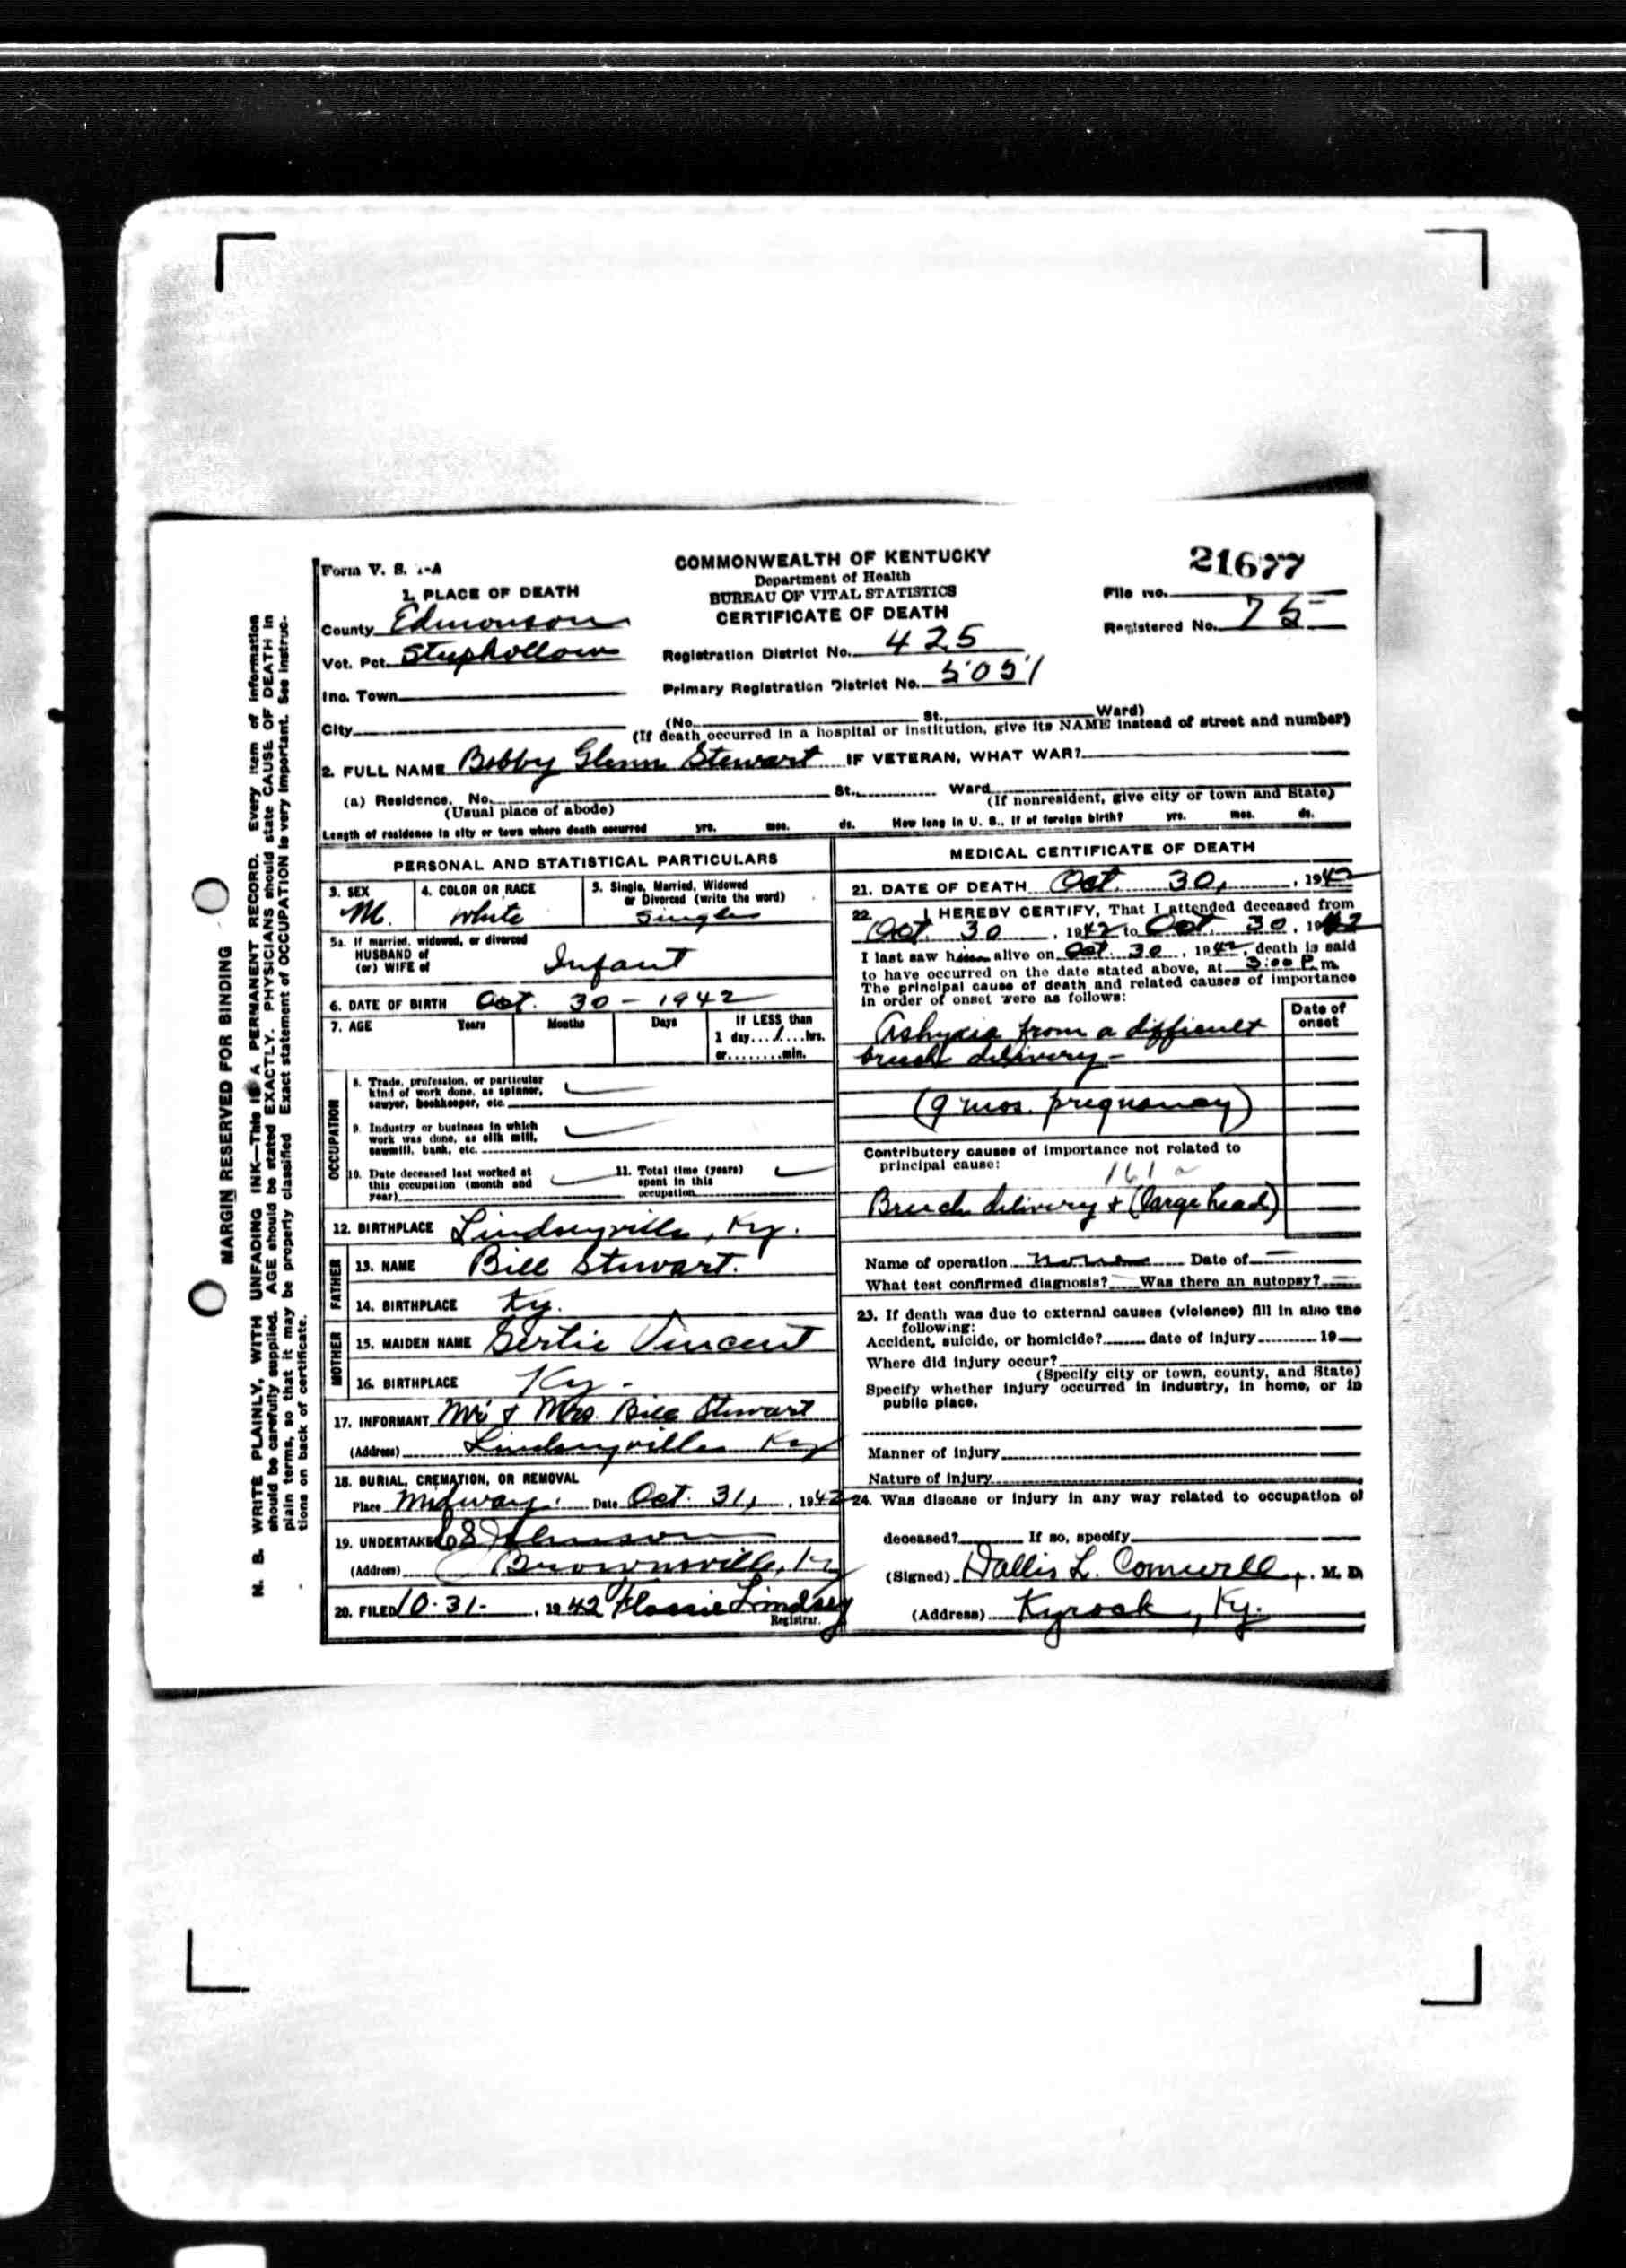 Form V. S. 1-A
COMMONWEALTH OF KENTUCKY
Department of Health
BUREAU OF VITAL STATISTICS
CERTIFICATE OF DEATH
21677
File No.
Registered No. 75
1. PLACE OF DEATH
County Edmonson
Vot. Pct. Stephollow
Inc. Town
City
Registration District No. 425
Primary Registration District No. 5051
(No. St. Ward)
(If death occurred in a hospital or institution, give its NAME instead of street and number)
2. FULL NAME Bobby Glenn Stewart IF VETERAN, WHAT WAR?
(a) Residence. No. St. Ward
(Usual place of abode) (If nonresident, give city or town and State)
Length of residence in city or town where death occurred yrs. mos. ds. How long in U. S., if of foreign birth? yrs. mos. ds.
PERSONAL AND STATISTICAL PARTICULARS
3. SEX 4. COLOR OR RACE 5. Single, Married, Widowed
or Divorced (write the word)
M. White Single
5a. If married, widowed, or divorced
HUSBAND of
(or) WIFE of Infant
6. DATE OF BIRTH Oct. 30 - 1942
7. AGE Years Months Days If LESS than
1 day....1....hrs.
or........min.
OCCUPATION
8. Trade, profession, or particular
kind of work done, as spinner,
sawyer, bookkeeper, etc.
9. Industry or business in which
work was done, as silk mill,
sawmill, bank, etc.
10. Date deceased last worked at
this occupation (month and
year)
11. Total time (years)
spent in this
occupation
12. BIRTHPLACE Lindseyville, Ky.
FATHER
13. NAME Bill Stewart.
14. BIRTHPLACE Ky.
MOTHER
15. MAIDEN NAME Gertie Vincent
16. BIRTHPLACE Ky.
17. INFORMANT Mr & Mrs. Bill Stewart
(Address) Lindseyville Ky
18. BURIAL, CREMATION, OR REMOVAL
Place Midway. Date Oct. 31, 1942
19. UNDERTAKER Johnson
(Address) Brownsville, Ky
20. FILED 10-31-, 1942 Flossie Lindsey
Registrar.
MEDICAL CERTIFICATE OF DEATH
21. DATE OF DEATH Oct. 30, 1942
22. I HEREBY CERTIFY, That I attended deceased from
Oct. 30, 1942 to Oct. 30, 1942
I last saw him alive on Oct. 30, 1942, death is said
to have occurred on the date stated above, at 3:00 P.m.
The principal cause of death and related causes of importance
in order of onset were as follows:
Date of
onset
Ashyxia from a difficult
breech delivery -
(9 mos. pregnancy)
Contributory causes of importance not related to
principal cause:
161a
Breech delivery + (large head)
Name of operation none Date of
What test confirmed diagnosis? Was there an autopsy?
23. If death was due to external causes (violence) fill in also the
following:
Accident, suicide, or homicide? date of injury 19
Where did injury occur?
(Specify city or town, county, and State)
Specify whether injury occurred in industry, in home, or in
public place.
Manner of injury
Nature of injury
24. Was disease or injury in any way related to occupation of
deceased? If so, specify
(Signed) Dallis L. Comwell, M. D.
(Address) Kyrock, Ky.
MARGIN RESERVED FOR BINDING
N. B. WRITE PLAINLY, WITH UNFADING INK—This is A PERMANENT RECORD. Every item of information
should be carefully supplied. AGE should be stated EXACTLY. PHYSICIANS should state CAUSE OF DEATH in
plain terms, so that it may be properly classified. Exact statement of OCCUPATION is very important. See instruc-
tions on back of certificate.